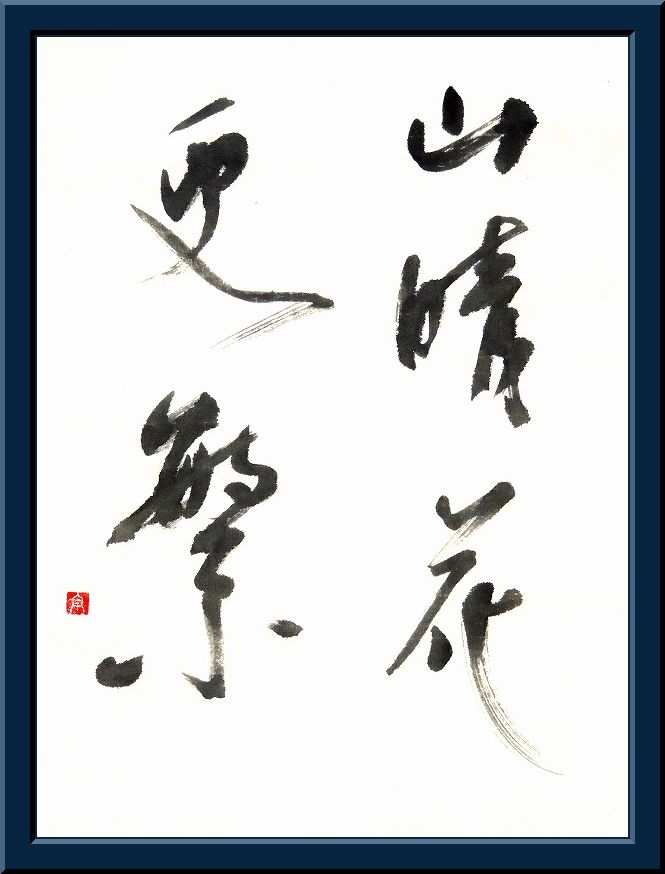 山晴花
更繁